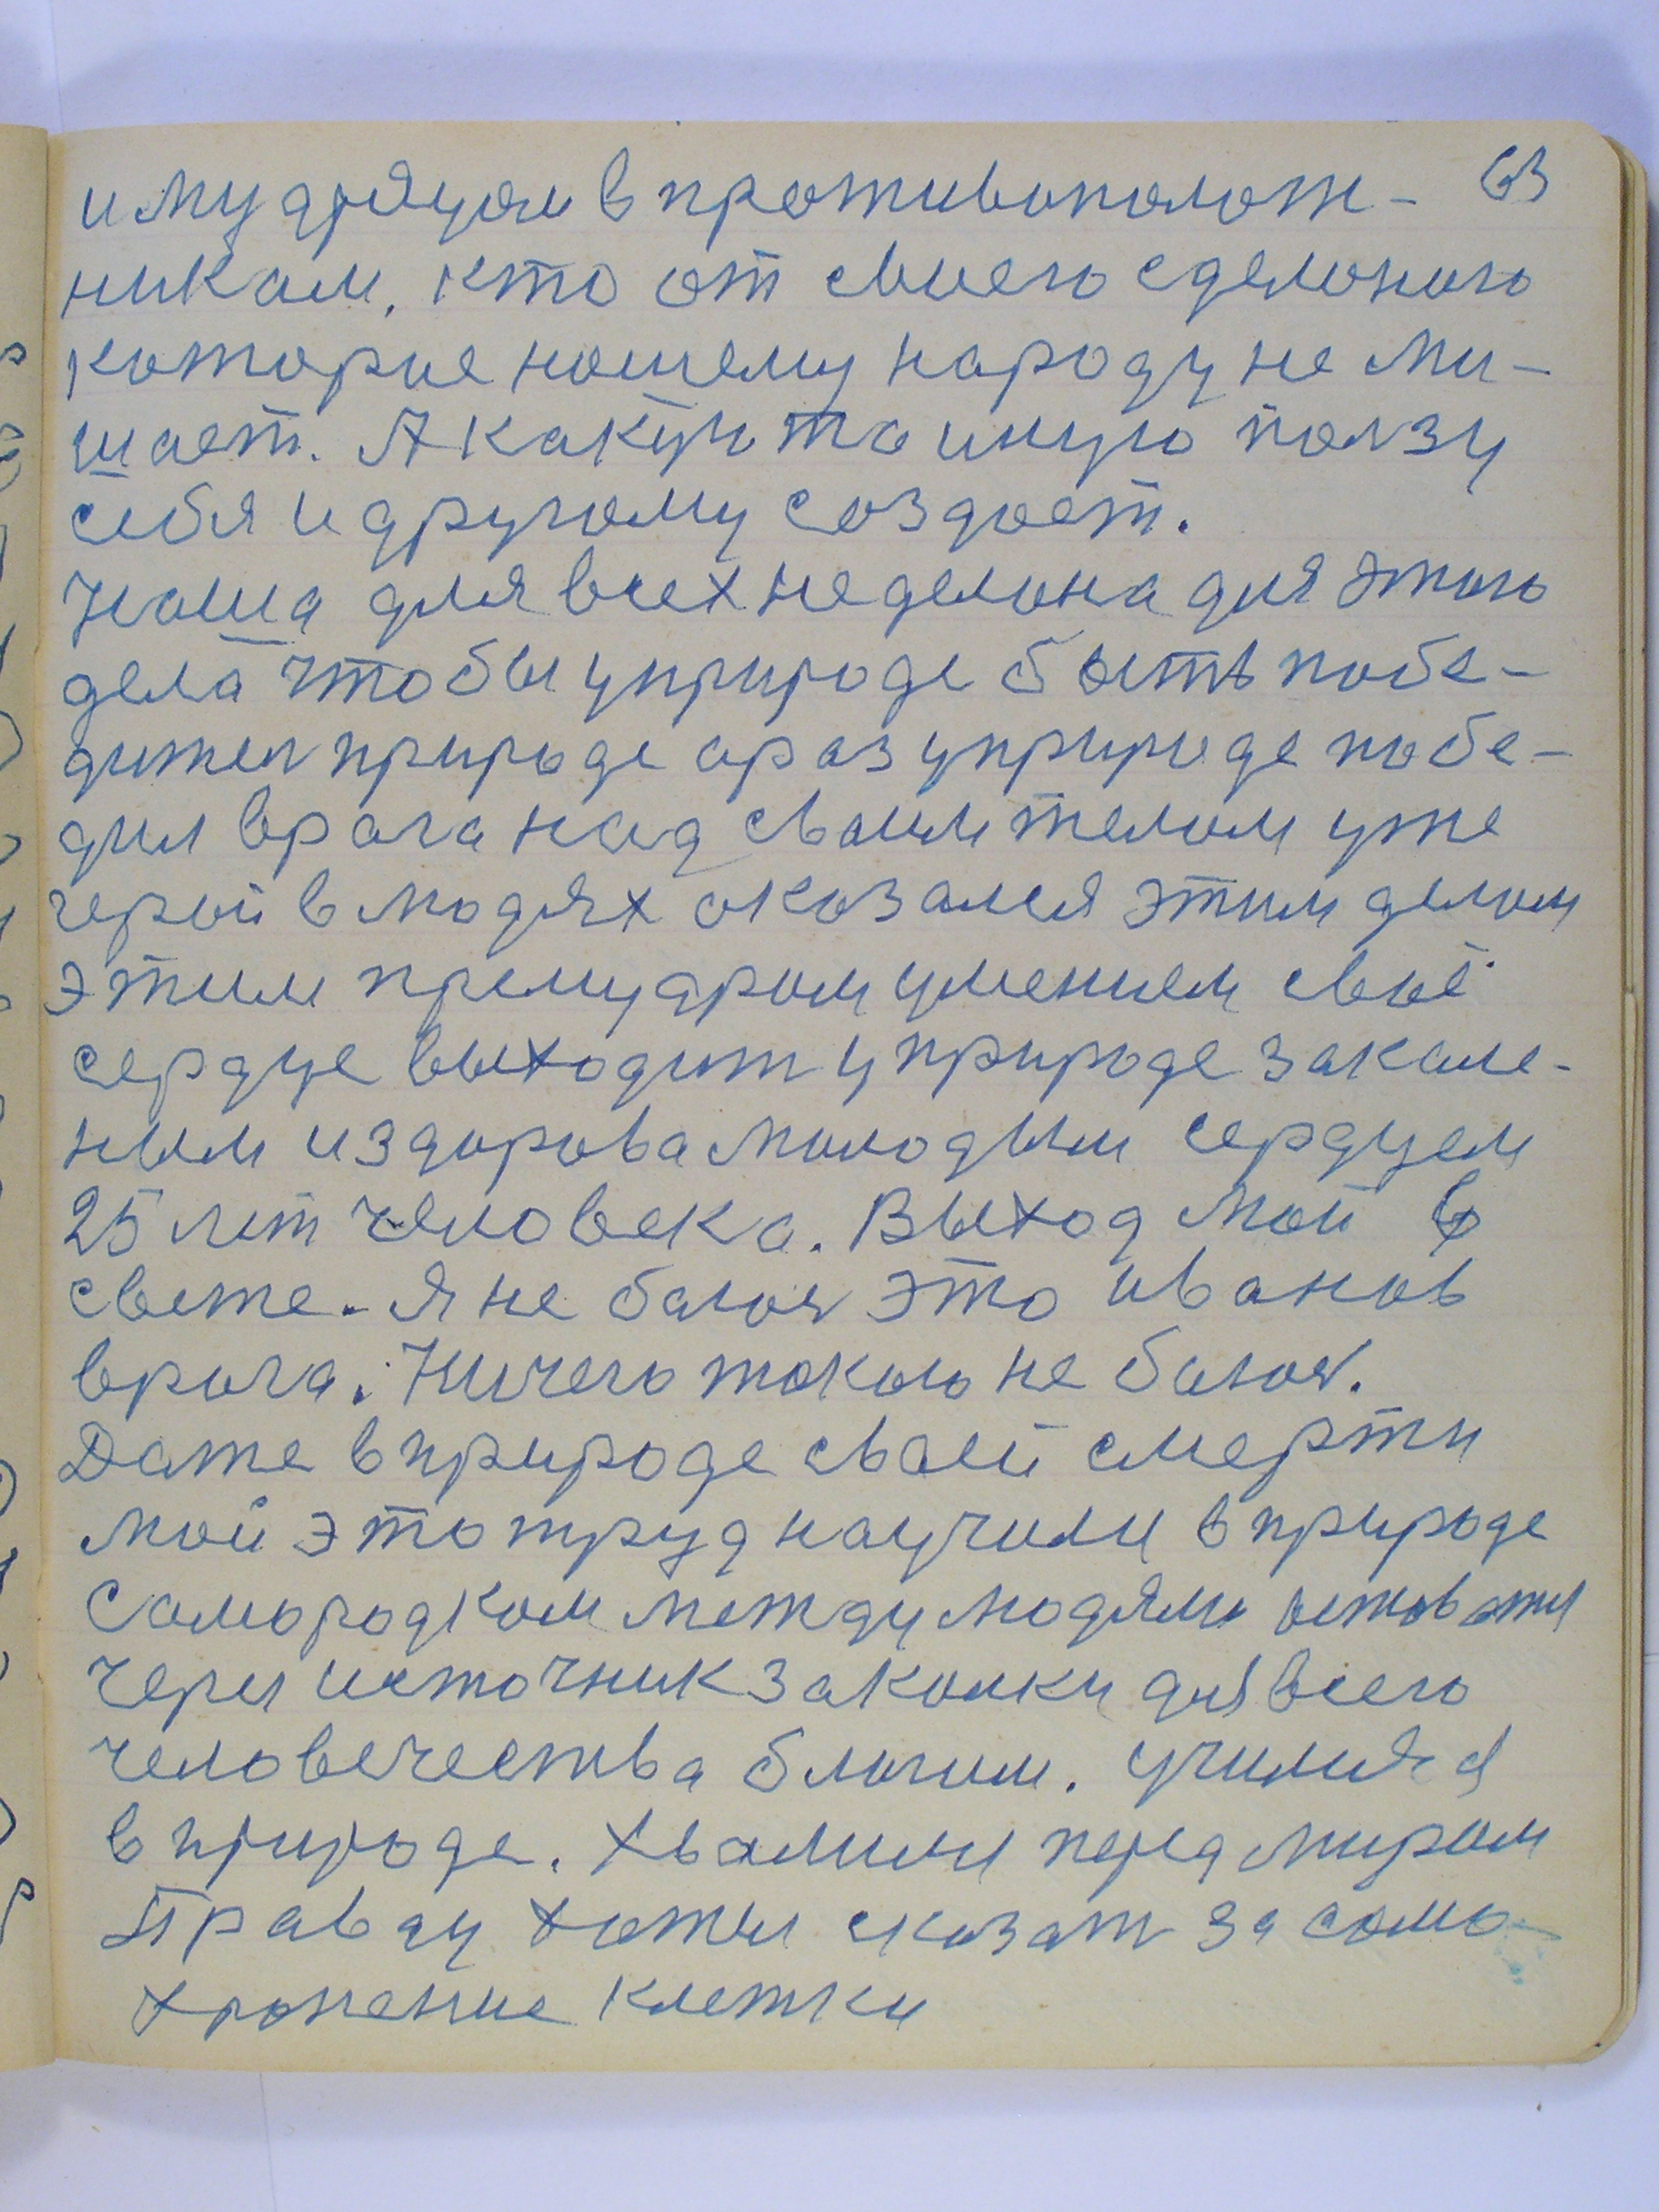 63
и мудрецам в противополож-
никам, кто от своего сделоного
которые нашему народу не ми-
шает. А какую то иную ползу
себя и другому создает.
Наша для всех не делона для этого
дела чтобы у природе быть побе-
дител природе а раз у природе побе-
дил врага над своим телом уже
герой в людях оказался этим делом
этим премудрам умением своё
сердце выходит у природе закале-
ным и здорова молодым сердцем
25 лет человека. Выход мой в
свете. Я не баюся это иванов
врага. Ничего такого не баюся.
Даже в природе своей смерти
мой это труд научили в природе
самородком между людями
через источник закалки для всего
человечества благим. училися
в природе. хвалили перед миром
Правду хотел сказат за само-
хронение клетки